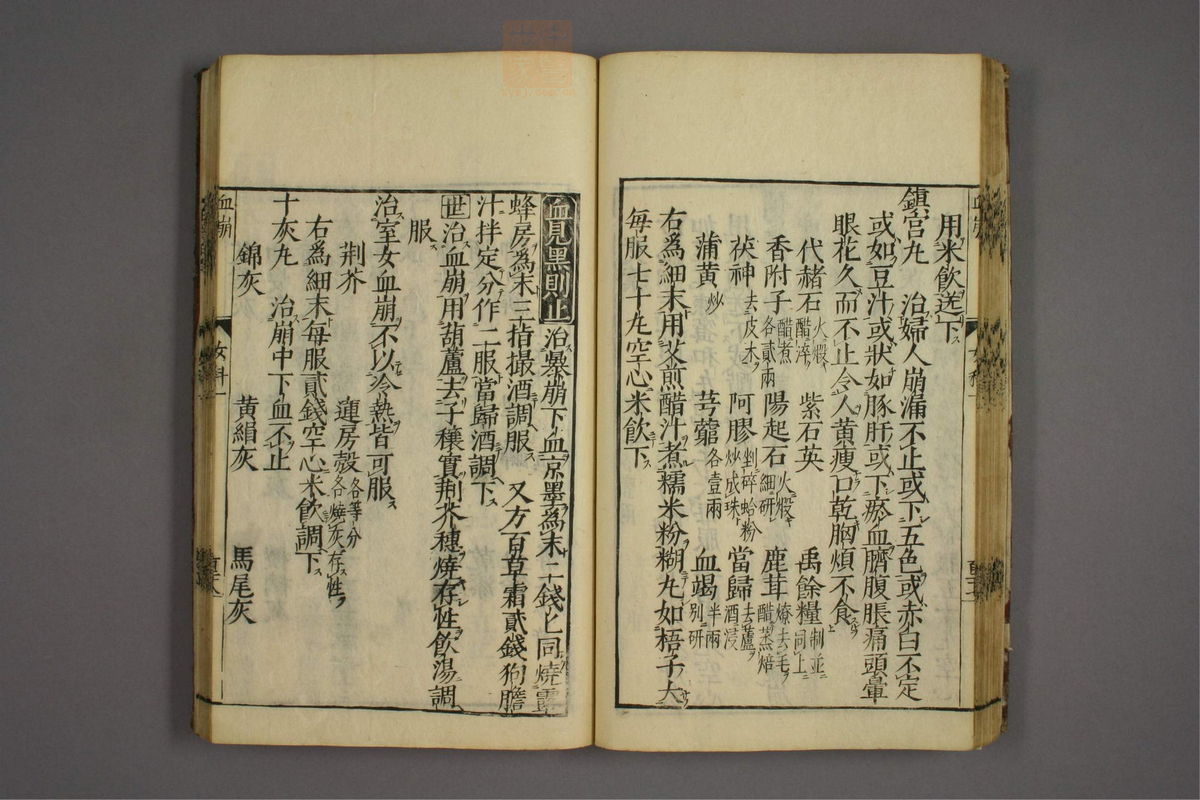 用米飲送下
鎮宮丸　治婦人崩漏不止或下五色或赤白不定
或如豆汁或狀如豚肝或下瘀血臍腹脹痛頭暈
眼花久而不止令人黄瘦口乾胸煩不食
代赭石火煅醋淬　紫石英　禹餘糧制並同上
香附子醋煮各貳兩　陽起石火煅細研　鹿茸燎去毛醋蒸焙
茯神去皮木　阿膠剉碎蛤粉炒成珠　當歸去蘆酒浸
蒲黄炒　芎藭各壹兩　血竭別研半兩
右爲細末用艾煎醋汁煮糯米粉糊丸如梧子大
每服七十丸空心米飲下
血崩
女科
血見黑則止　治暴崩下血京墨爲末二錢匕同燒露
蜂房爲末三指撮酒調服　又方百草霜貳錢狗膽
汁拌定分作二服當歸酒調下
世治血崩用葫蘆去子穰實荆芥穗燒存性飲湯調
服
治室女血崩不以冷熱皆可服
荆芥　蓮房殼各等分各燒灰存性
右爲細末每服貳錢空心米飲調下
十灰丸　治崩中下血不止
錦灰　黄絹灰　馬尾灰
血崩
女科一